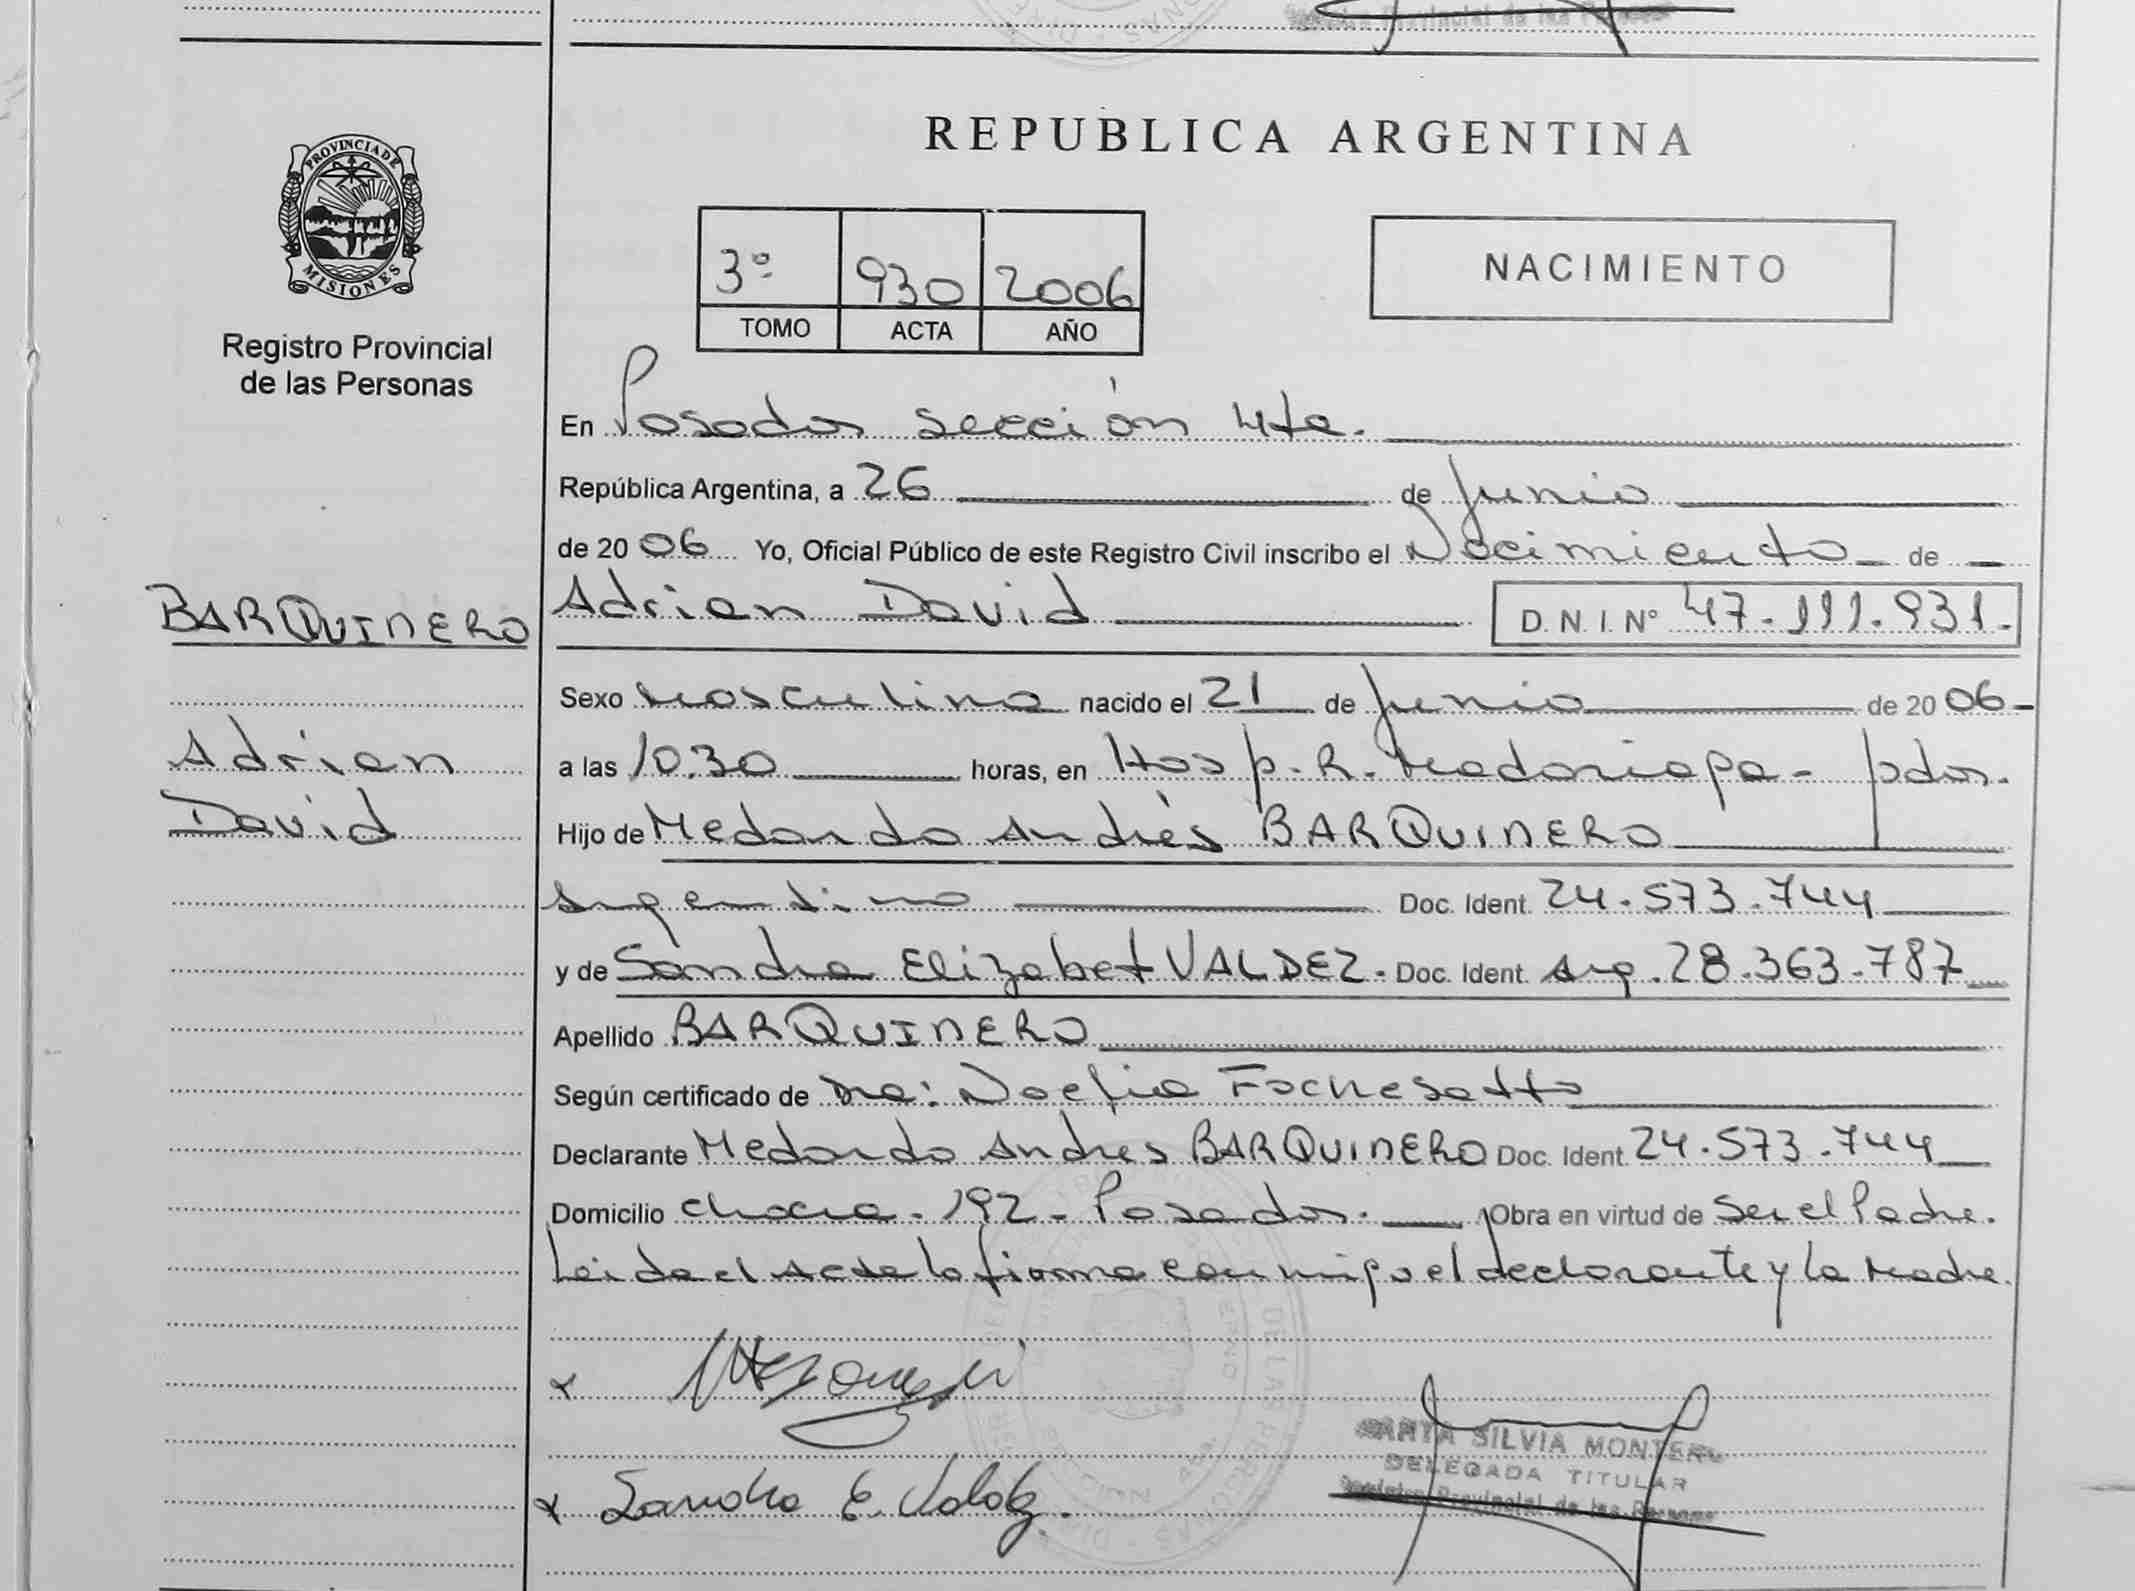 REPUBLICA ARGENTINA
PROVINCIA DE
MISIONES
Registro Provincial
de las Personas
3º 930 2006
TOMO ACTA AÑO
NACIMIENTO
En Posadas sección 4ta.
República Argentina, a 26 de Junio
de 2006 Yo, Oficial Público de este Registro Civil inscribo el Nacimiento de
BARQUINERO
Adrian David D. N. I. Nº 47.111.931.
Sexo Masculino nacido el 21 de Junio de 2006
Adrian
a las 10.30 horas, en Hosp. R. Madariaga - pdas.
David
Hijo de Medardo Andrés BARQUINERO
Argentino Doc. Ident. 24.573.744
y de Sandra Elizabet VALDEZ. Doc. Ident. Arg. 28.363.787
Apellido BARQUINERO
Según certificado de Dra: Noelia Fochesatto
Declarante Medardo Andres BARQUINERO Doc. Ident. 24.573.744
Domicilio Chacra - 192 - Posadas. Obra en virtud de Ser el Padre.
Leida el Acta la firma conmigo el declarante y la Madre.
Sandra E. Valdez.
SILVIA MONTERO
DELEGADA TITULAR
Registro Provincial de las Personas